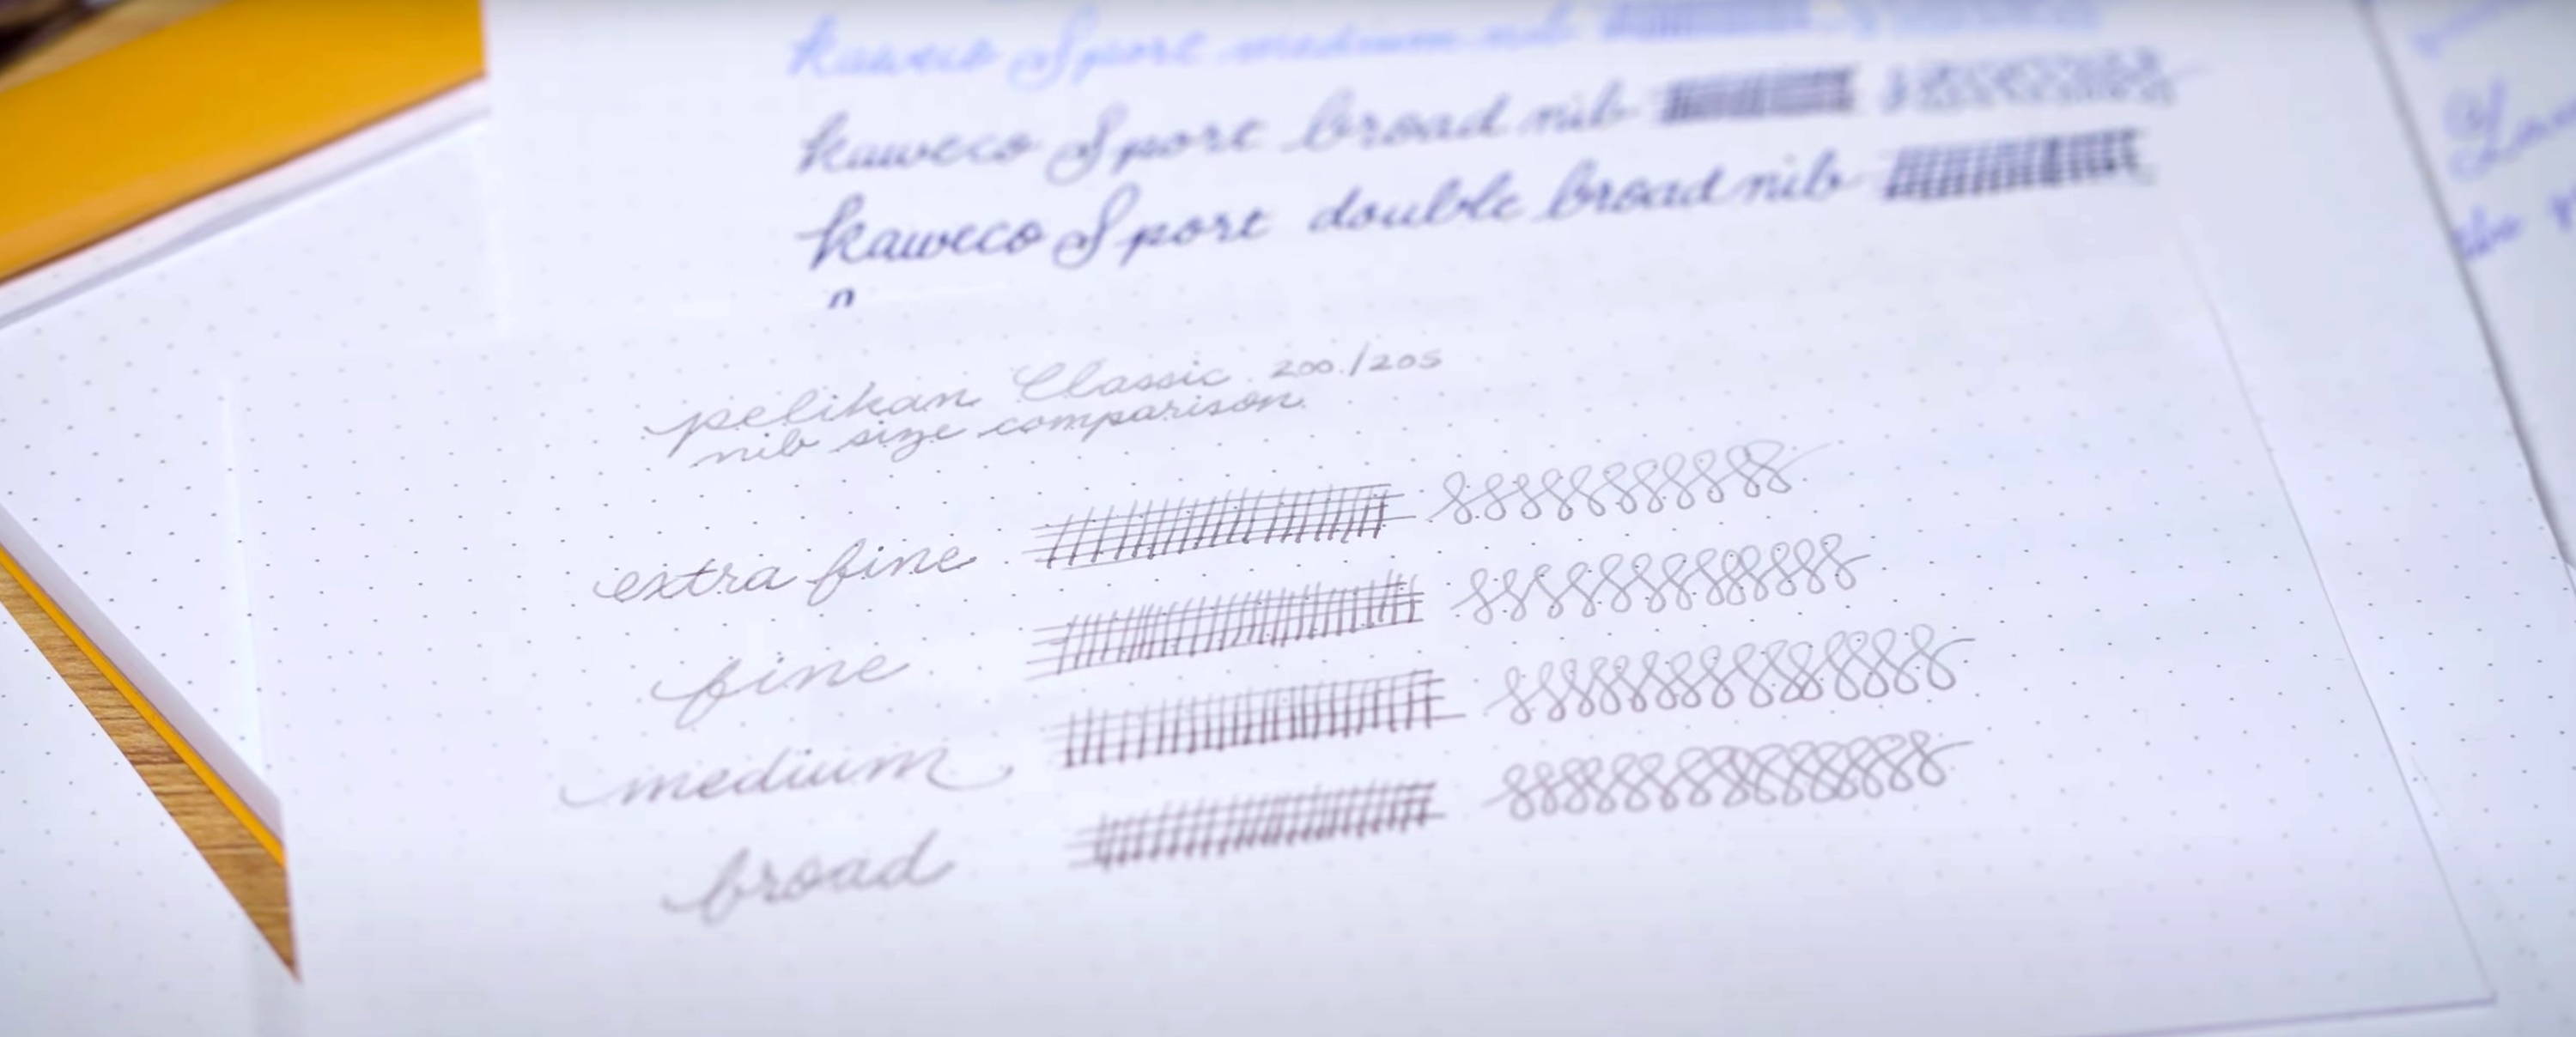 kaweco Sport medium nib
kaweco Sport broad nib
kaweco Sport double broad nib
pelikan Classic 200/205
nib size comparison
extra fine
fine
medium
broad